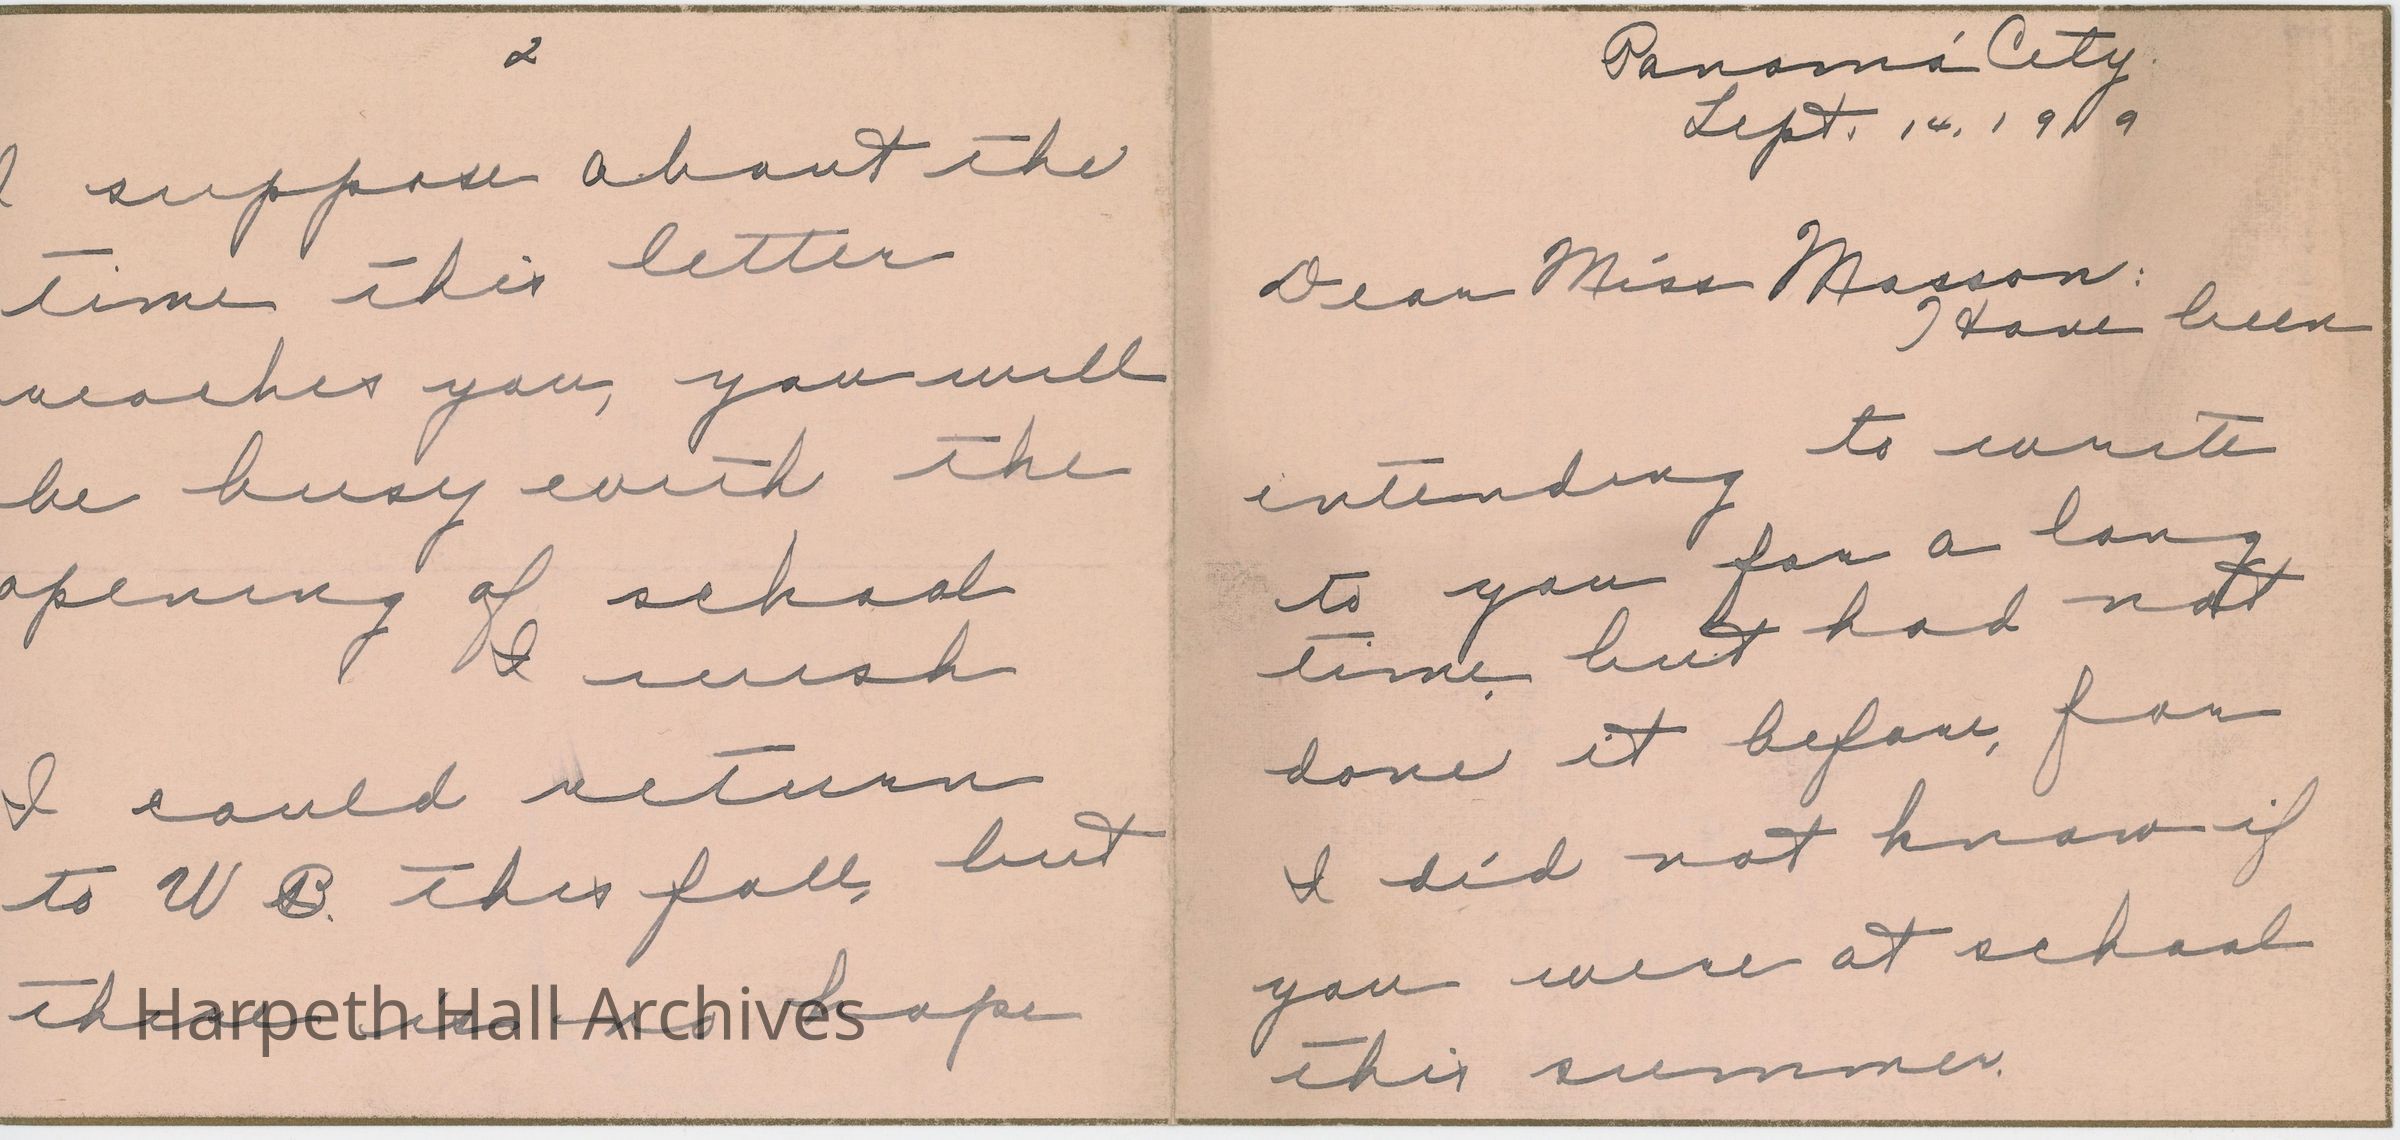 Panamá City.
Sept. 14, 1919
Dear Miss Masson:
I Have been
intending to write
to you for a long
time, but had not
done it before, for
I did not know if
you were at school
this summer.
2
I suppose about the
time this letter
reaches you, you will
be busy with the
opening of school
I wish
I could return
to W B. this fall, but
there is no hope
Harpeth Hall Archives